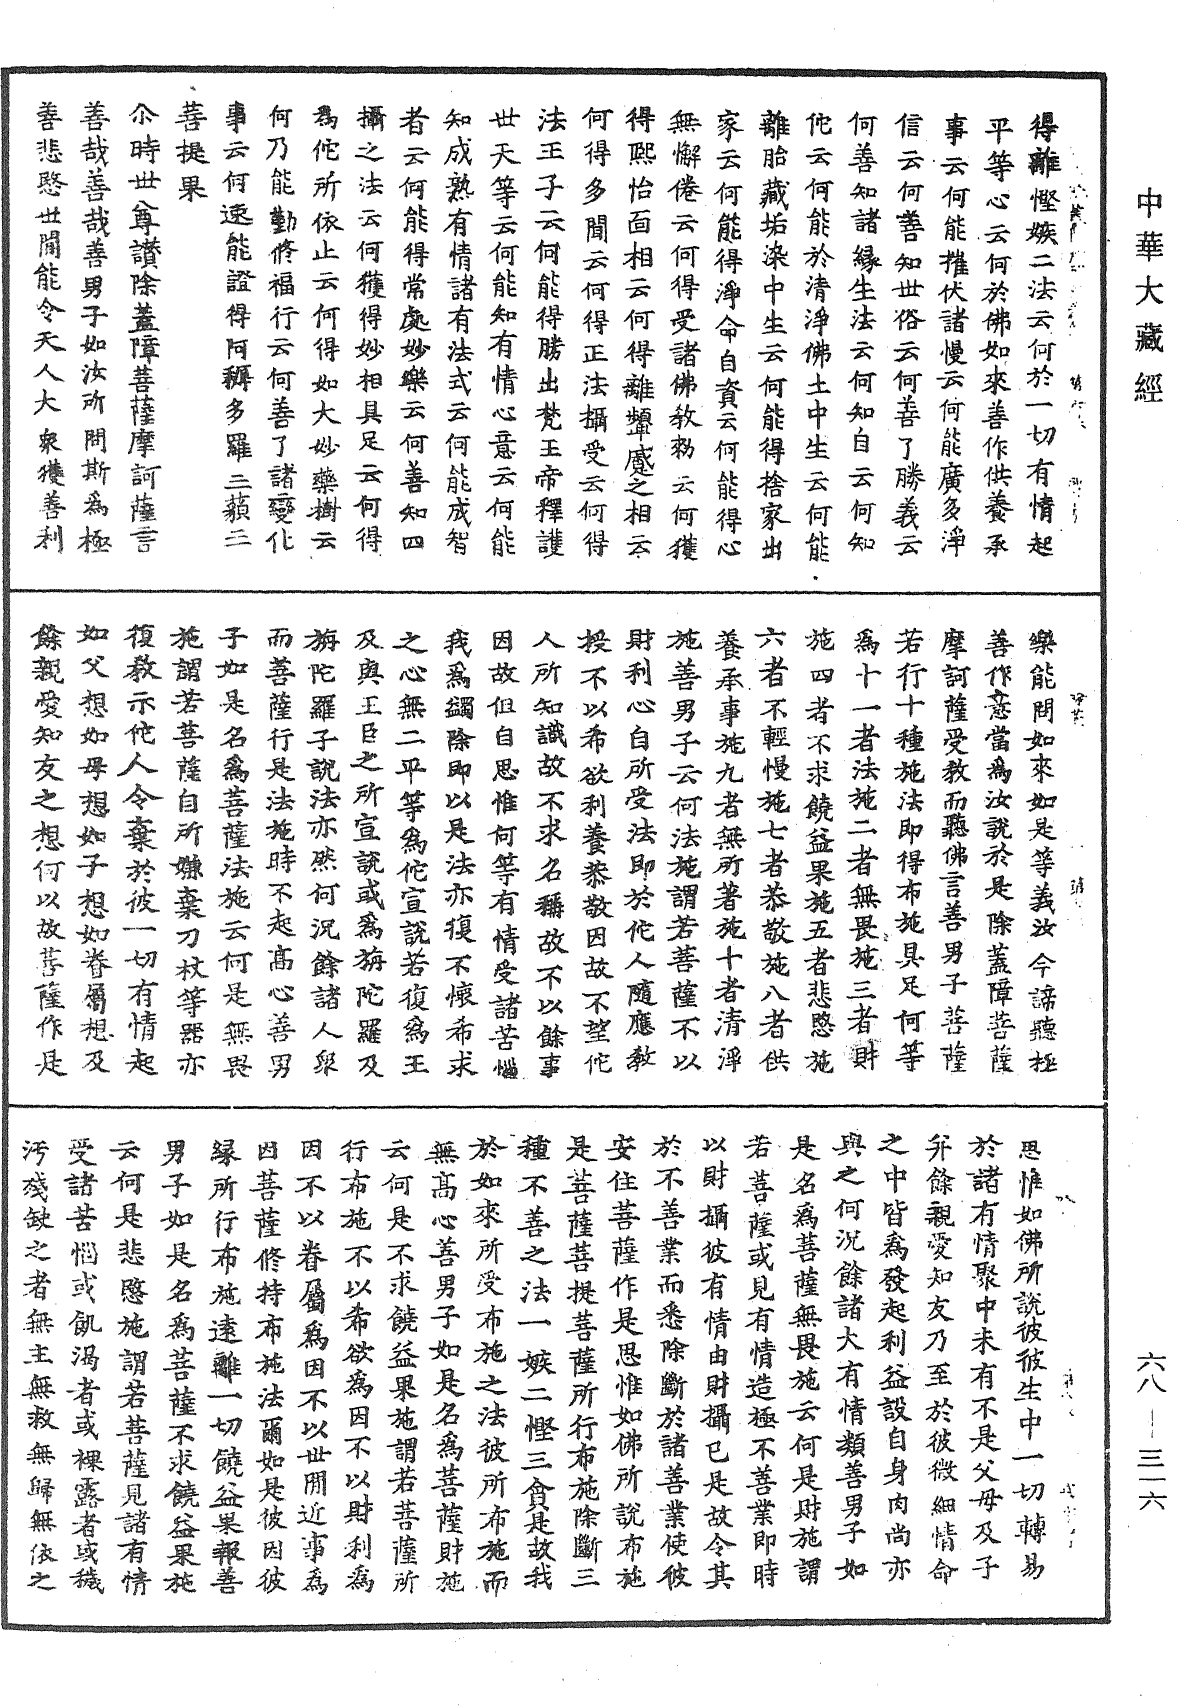 中華大藏經
得離慳嫉二法云何於一切有情起
平等心云何於佛如來善作供養承
事云何能摧伏諸慢云何能廣多淨
信云何善知世俗云何善了勝義云
何善知諸緣生法云何知自云何知
他云何能於清淨佛土中生云何能
離胎藏垢染中生云何能得捨家出
家云何能得淨命自資云何能得心
無懈倦云何得受諸佛教勑云何獲
得熙怡面相云何得離顰蹙之相云
何得多聞云何得正法攝受云何得
法王子云何能得勝出梵王帝釋護
世天等云何能知有情心意云何能
知成熟有情諸有法式云何能成智
者云何能得常處妙樂云何善知四
攝之法云何獲得妙相具足云何得
為佗所依止云何得如大妙藥樹云
何乃能勤修福行云何善了諸變化
事云何速能證得阿耨多羅三藐三
菩提果
尒時世尊讚除蓋障菩薩摩訶薩言
善哉善哉善男子如汝所問斯為極
善悲愍世間能令天人大衆獲善利
樂能問如來如是等義汝今諦聽極
善作意當為汝說於是除蓋障菩薩
摩訶薩受教而聽佛言善男子菩薩
若行十種施法即得布施具足何等
為十一者法施二者無畏施三者財
施四者不求饒益果施五者悲愍施
六者不輕慢施七者恭敬施八者供
養承事施九者無所著施十者清淨
施善男子云何法施謂若菩薩不以
財利心自所受法即於佗人隨應教
授不以希欲利養恭敬因故不望佗
人所知識故不求名稱故不以餘事
因故但自思惟何等有情受諸苦惱
我為蠲除即以是法亦復不懷希求
之心無二平等為佗宣說若復為王
及與王臣之所宣說或為旃陀羅及
旃陀羅子說法亦然何況餘諸人衆
而菩薩行是法施時不起高心善男
子如是名為菩薩法施云何是無畏
施謂若菩薩自所嫌棄刀杖等器亦
復教示佗人令棄於彼一切有情起
如父想如母想如子想如眷屬想及
餘親愛知友之想何以故菩薩作是
思惟如佛所說彼彼生中一切轉易
於諸有情聚中未有不是父母及子
并餘親愛知友乃至於彼微細情命
之中皆為發起利益設自身肉尚亦
與之何況餘諸大有情類善男子如
是名為菩薩無畏施云何是財施謂
若菩薩或見有情造極不善業即時
以財攝彼有情由財攝已是故令其
於不善業而悉除斷於諸善業使彼
安住菩薩作是思惟如佛所說布施
是菩薩菩提菩薩所行布施除斷三
種不善之法一嫉二慳三貪是故我
於如來所受布施之法彼所布施而
無高心善男子如是名為菩薩財施
云何是不求饒益果施謂若菩薩所
行布施不以希欲為因不以財利為
因不以眷屬為因不以世間近事為
因菩薩修持布施法爾如是彼因彼
緣所行布施遠離一切饒益果報善
男子如是名為菩薩不求饒益果施
云何是悲愍施謂若菩薩見諸有情
受諸苦惱或飢渴者或裸露者或穢
汙殘缺之者無主無救無歸無依之
六八—三一六